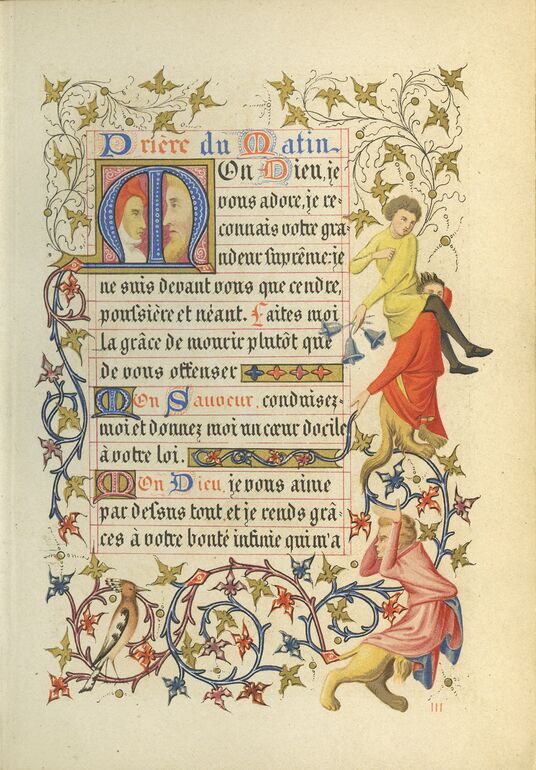 Prière du Matin
MOn Dieu, je
vous adore, je re-
connais votre gra-
ndeur suprême: je
ne suis devant vous que cendre,
poussière et néant. Faites moi
la grâce de mourir plutôt que
de vous offenser
Mon Sauveur, conduisez-
moi et donnez moi un cœur docile
à votre loi.
Mon Dieu, je vous aime
par dessus tout, et je rends grâ-
ces à votre bonté infinie qui m'a
III